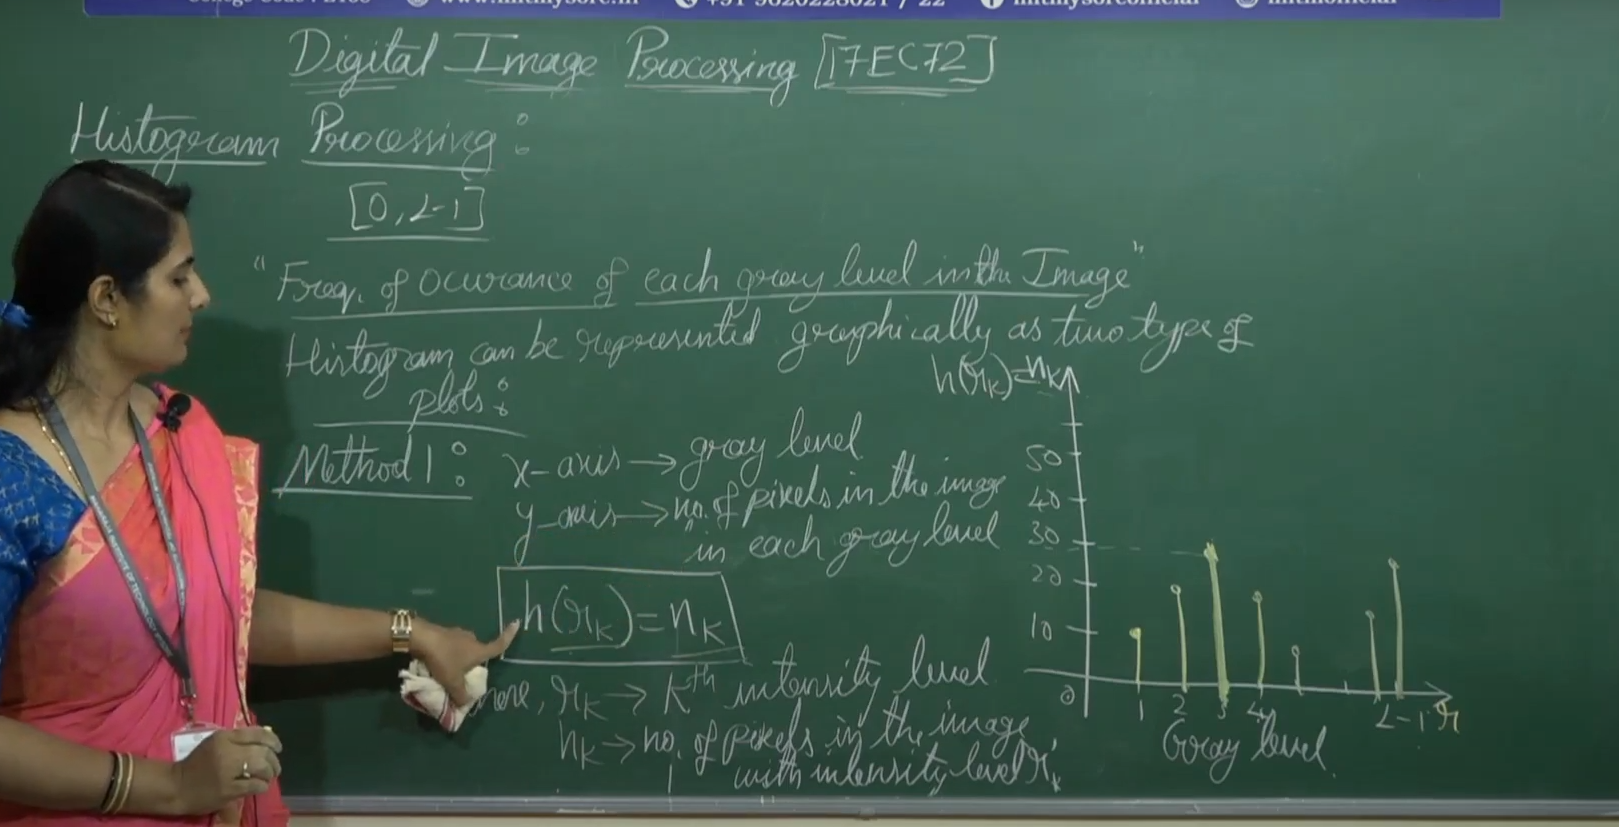 www.mitmysore.in
+91 9620228021 / 22
mitmysoreofficial
mitmofficial
Digital Image Processing [17EC72]
Histogram Processing :
[0, L-1]
"Freq. of Ocurance of each gray level in the Image"
Histogram can be represented graphically as two type of
plots :
Method 1 :
x-axis → gray level
y-axis → no. of pixels in the image
in each gray level
h(rk) = nk
rk → Kth intensity level
nk → no. of pixels in the image
with intensity level rk
h(rk) = nk
50
40
30
20
10
0
1 2 3 4 L-1 r
Gray level